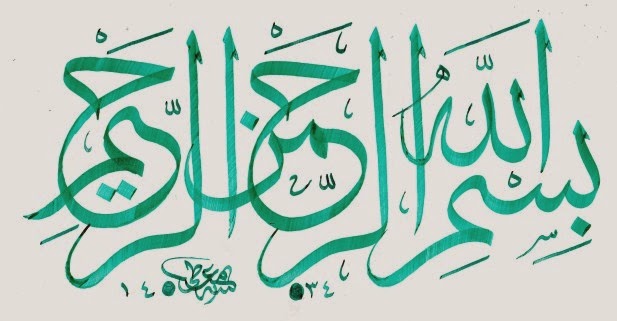 بسم الله الرحمن الرحيم
١٤ ٣٤